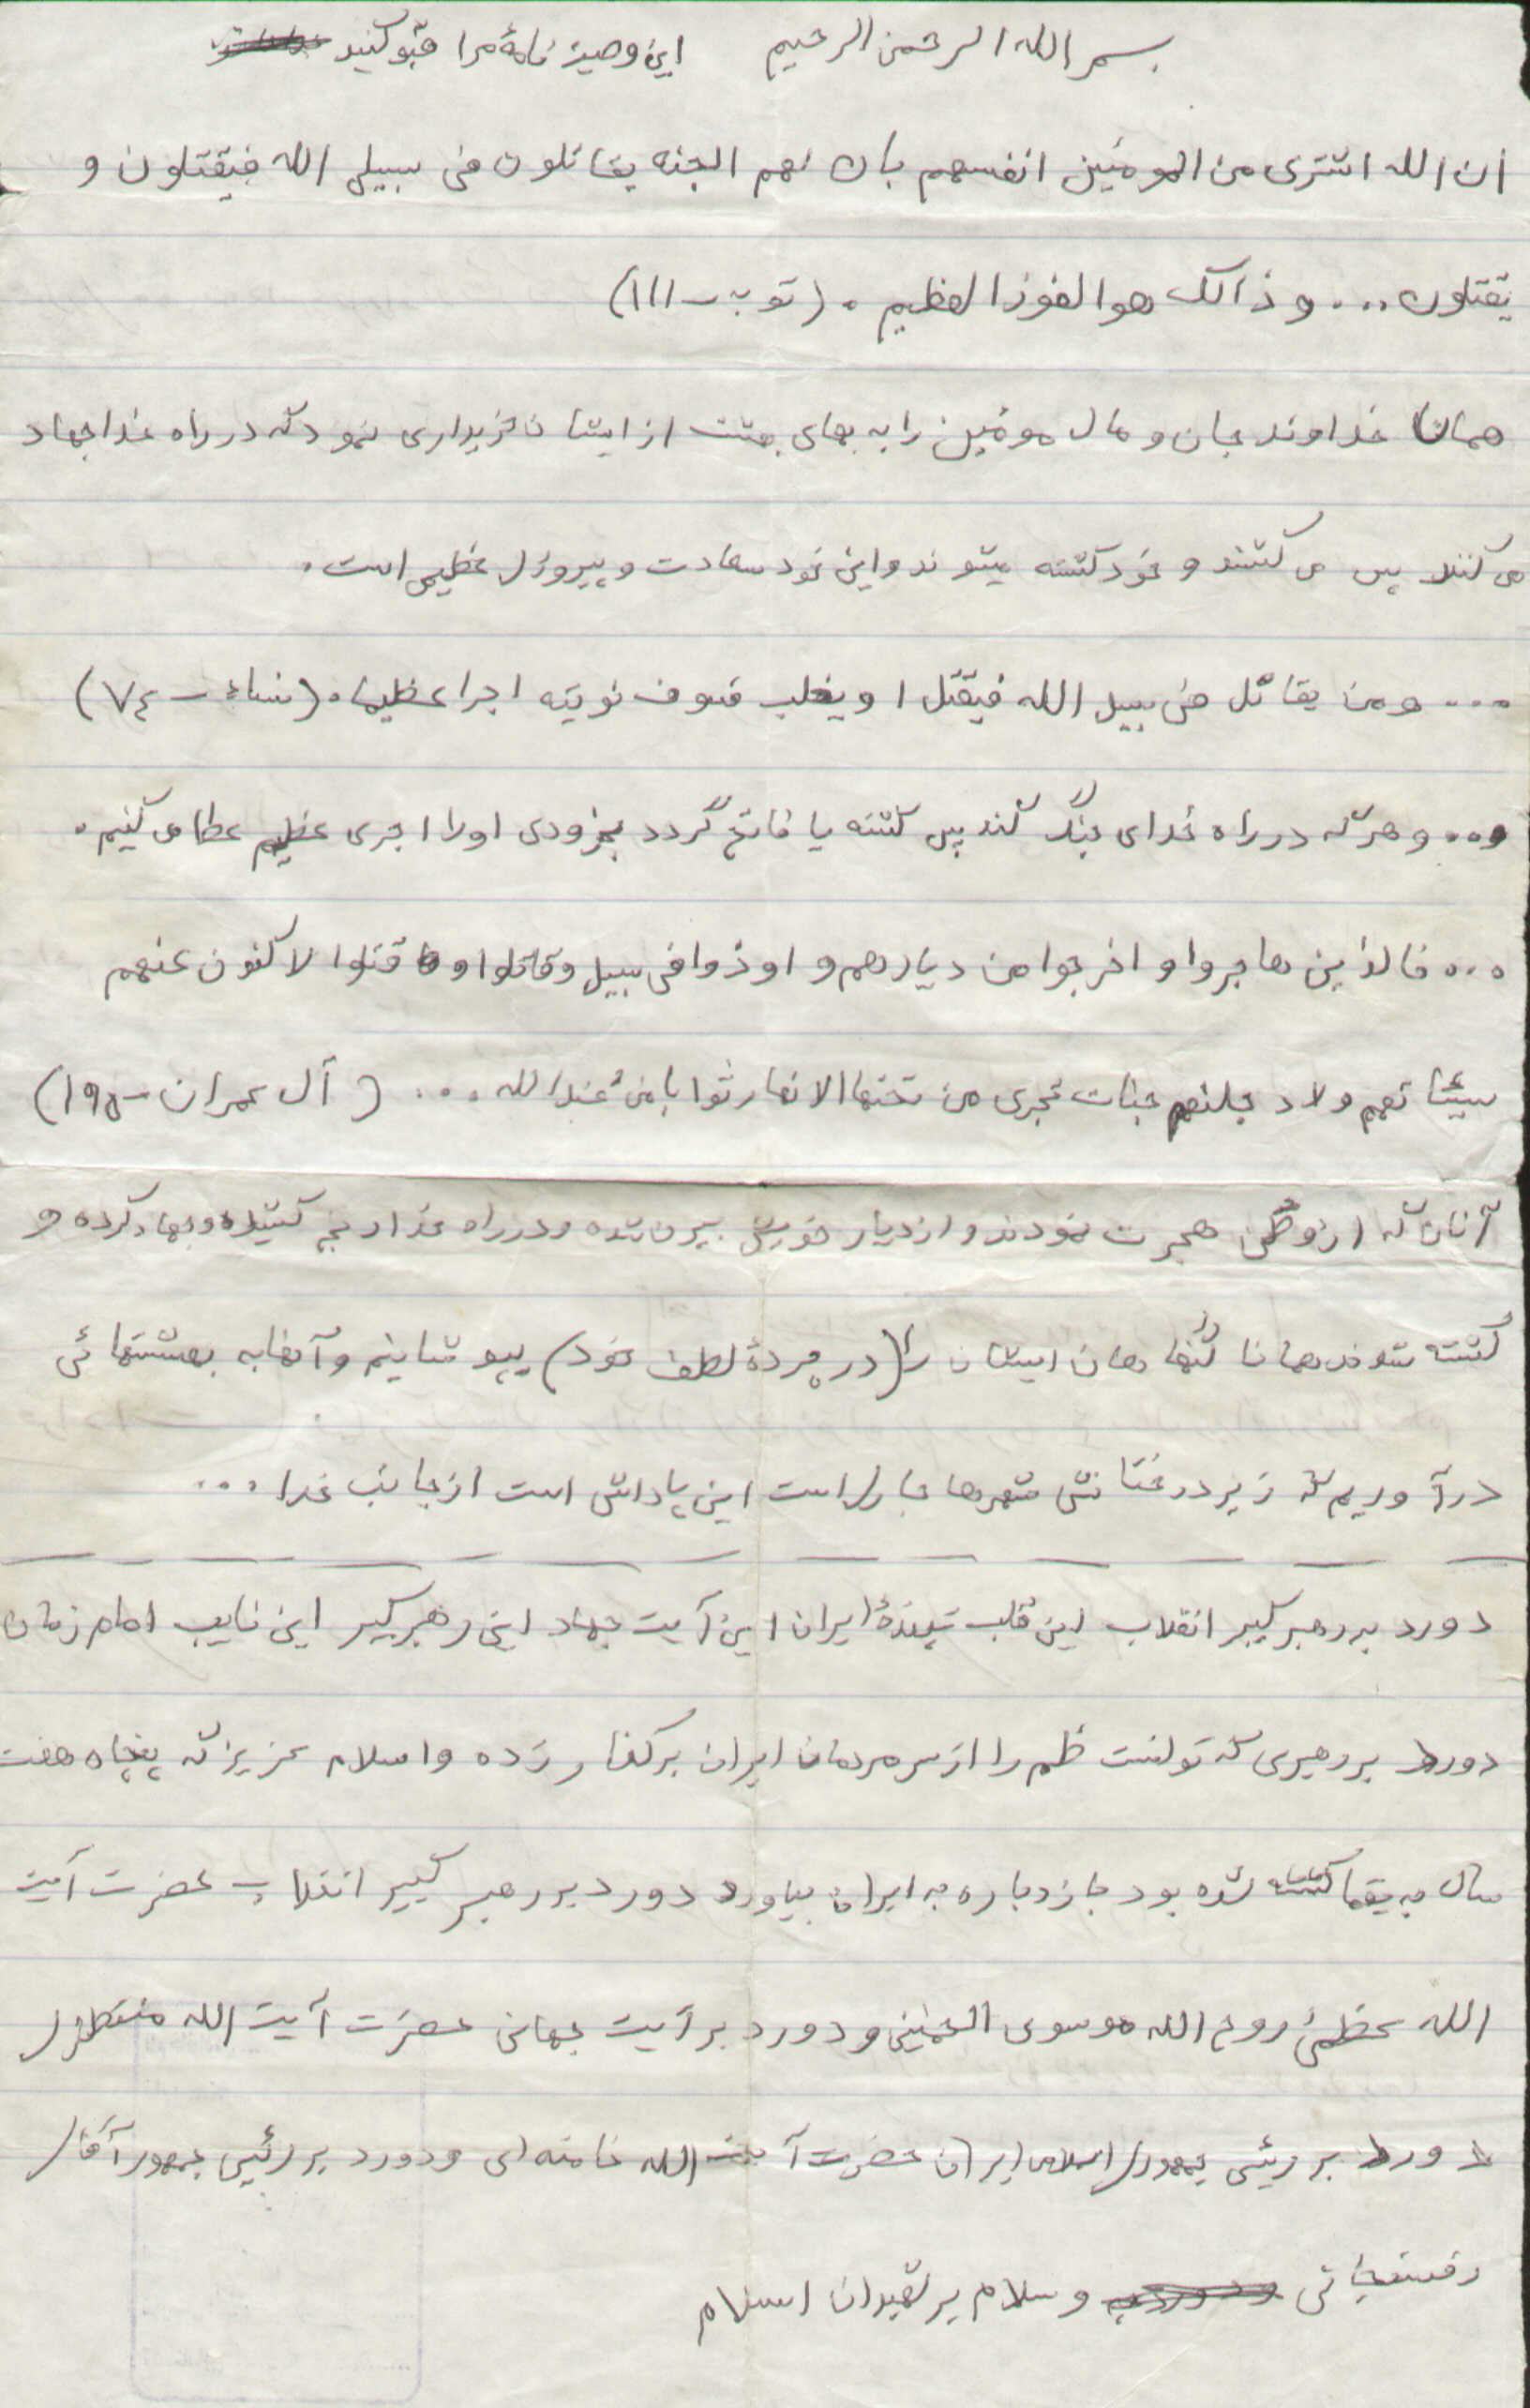 بسم الله الرحمن الرحیم این وصیت نامهٔ مرا قبو کنید
ان الله اشتری من المومنین انفسهم بان لهم الجنه یقاتلون فی سبیلی الله فیقتلون و
یقتلون ... و ذالک هو الفوز العظیم . (توبه - ۱۱۱)
همانا خداوند جان و مال مومنین را به بهای بهشت از ایشان خریداری نمود که در راه خدا جهاد
می کنند پس می کشند و خود کشته میشوند و این خود سعادت و پیروزی عظیمی است .
... و من یقاتل فی سبیل الله فیقتل او یغلب فسوف نوتیه اجرا عظیما . (نساء - ۷٤)
... و هر که در راه خدای جنگ کند پس کشته یا فاتح گردد بزودی او را اجری عظیم عطا می کنیم .
... فالذین هاجروا و اخرجوا من دیارهم و اوذوا فی سبیل و قاتلوا و قتلوا لاکفون عنهم
سیئاتهم ولاد خلنهم جنات تجری من تحتها الانهار ثوابا من عندالله ... (آل عمران - ۱۹۵)
آنان که از وطن هجرت نمودند و از دیار خویش بیرن شده و در راه خدا رنج کشیده و جهاد کرده و
کشته شوند همانا گنهاهان ایشان را (در پردهٔ لطف خود) بپوشاینم و آنها به بهشتهائی
در آوریم که زیر درختانش شهرها جاری است این پاداش است از جانب خدا ...
دورد بر رهبر کبیر انقلاب این قلب تپندهٔ ایران این آیت جهاد این رهبر کبیر این نایب امام زمان
دورد بر رهبری که تونست ظلم را از سر مردمان ایران برکنار زده و اسلام عزیز که پنجاه هفت
سال به یقما کشته شده بود باز دباره به ایران بیاورد دورد بر رهبر کبیر انقلاب حضرت آیت
الله عظمیٰ روح الله موسوی الخمینی و دورد بر آیت جهانی حضرت آیت الله منتظری
دورد بر رئیس جمهوری اسلامی ایران حضرت آیت الله خامنه ای و دورد بر رئیس جمهور آقای
رفسنجانی و سلام بر شهیدان اسلام